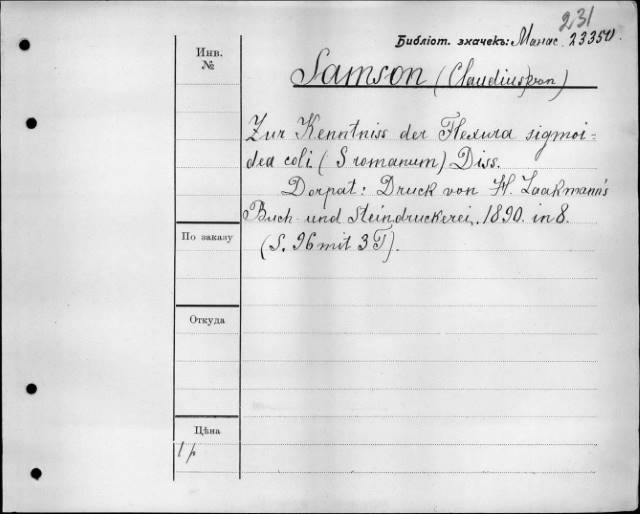 231
Библіот. значекъ: Манас. 23350
Инв.
№
Samson (Claudius von)
Zur Kenntniss der Flexura sigmoi-
dea coli (S romanum) Diss.
Dorpat: Druck von H. Laakmann's
Buch- und Steindruckerei, 1890. in 8.
(S. 96 mit 3 T).
По заказу
Откуда
Цѣна
1 р